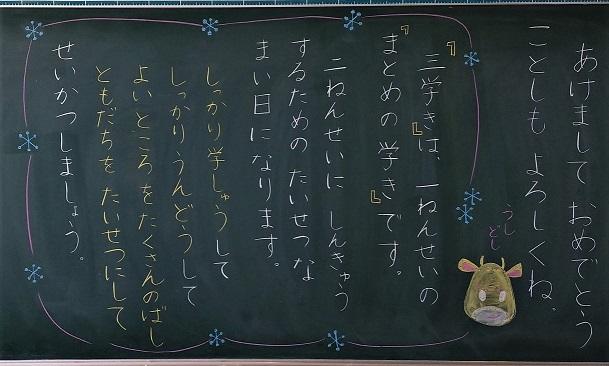 あけまして おめでとう
ことしも よろしくね。
うし
どし
『三学き』は、一ねんせいの
『まとめの 学き』です。
二ねんせいに しんきゅう
するための たいせつな
まい日になります。
しっかり 学しゅうして
しっかり うんどうして
よいところを たくさんのばし
ともだちを たいせつにして
せいかつしましょう。